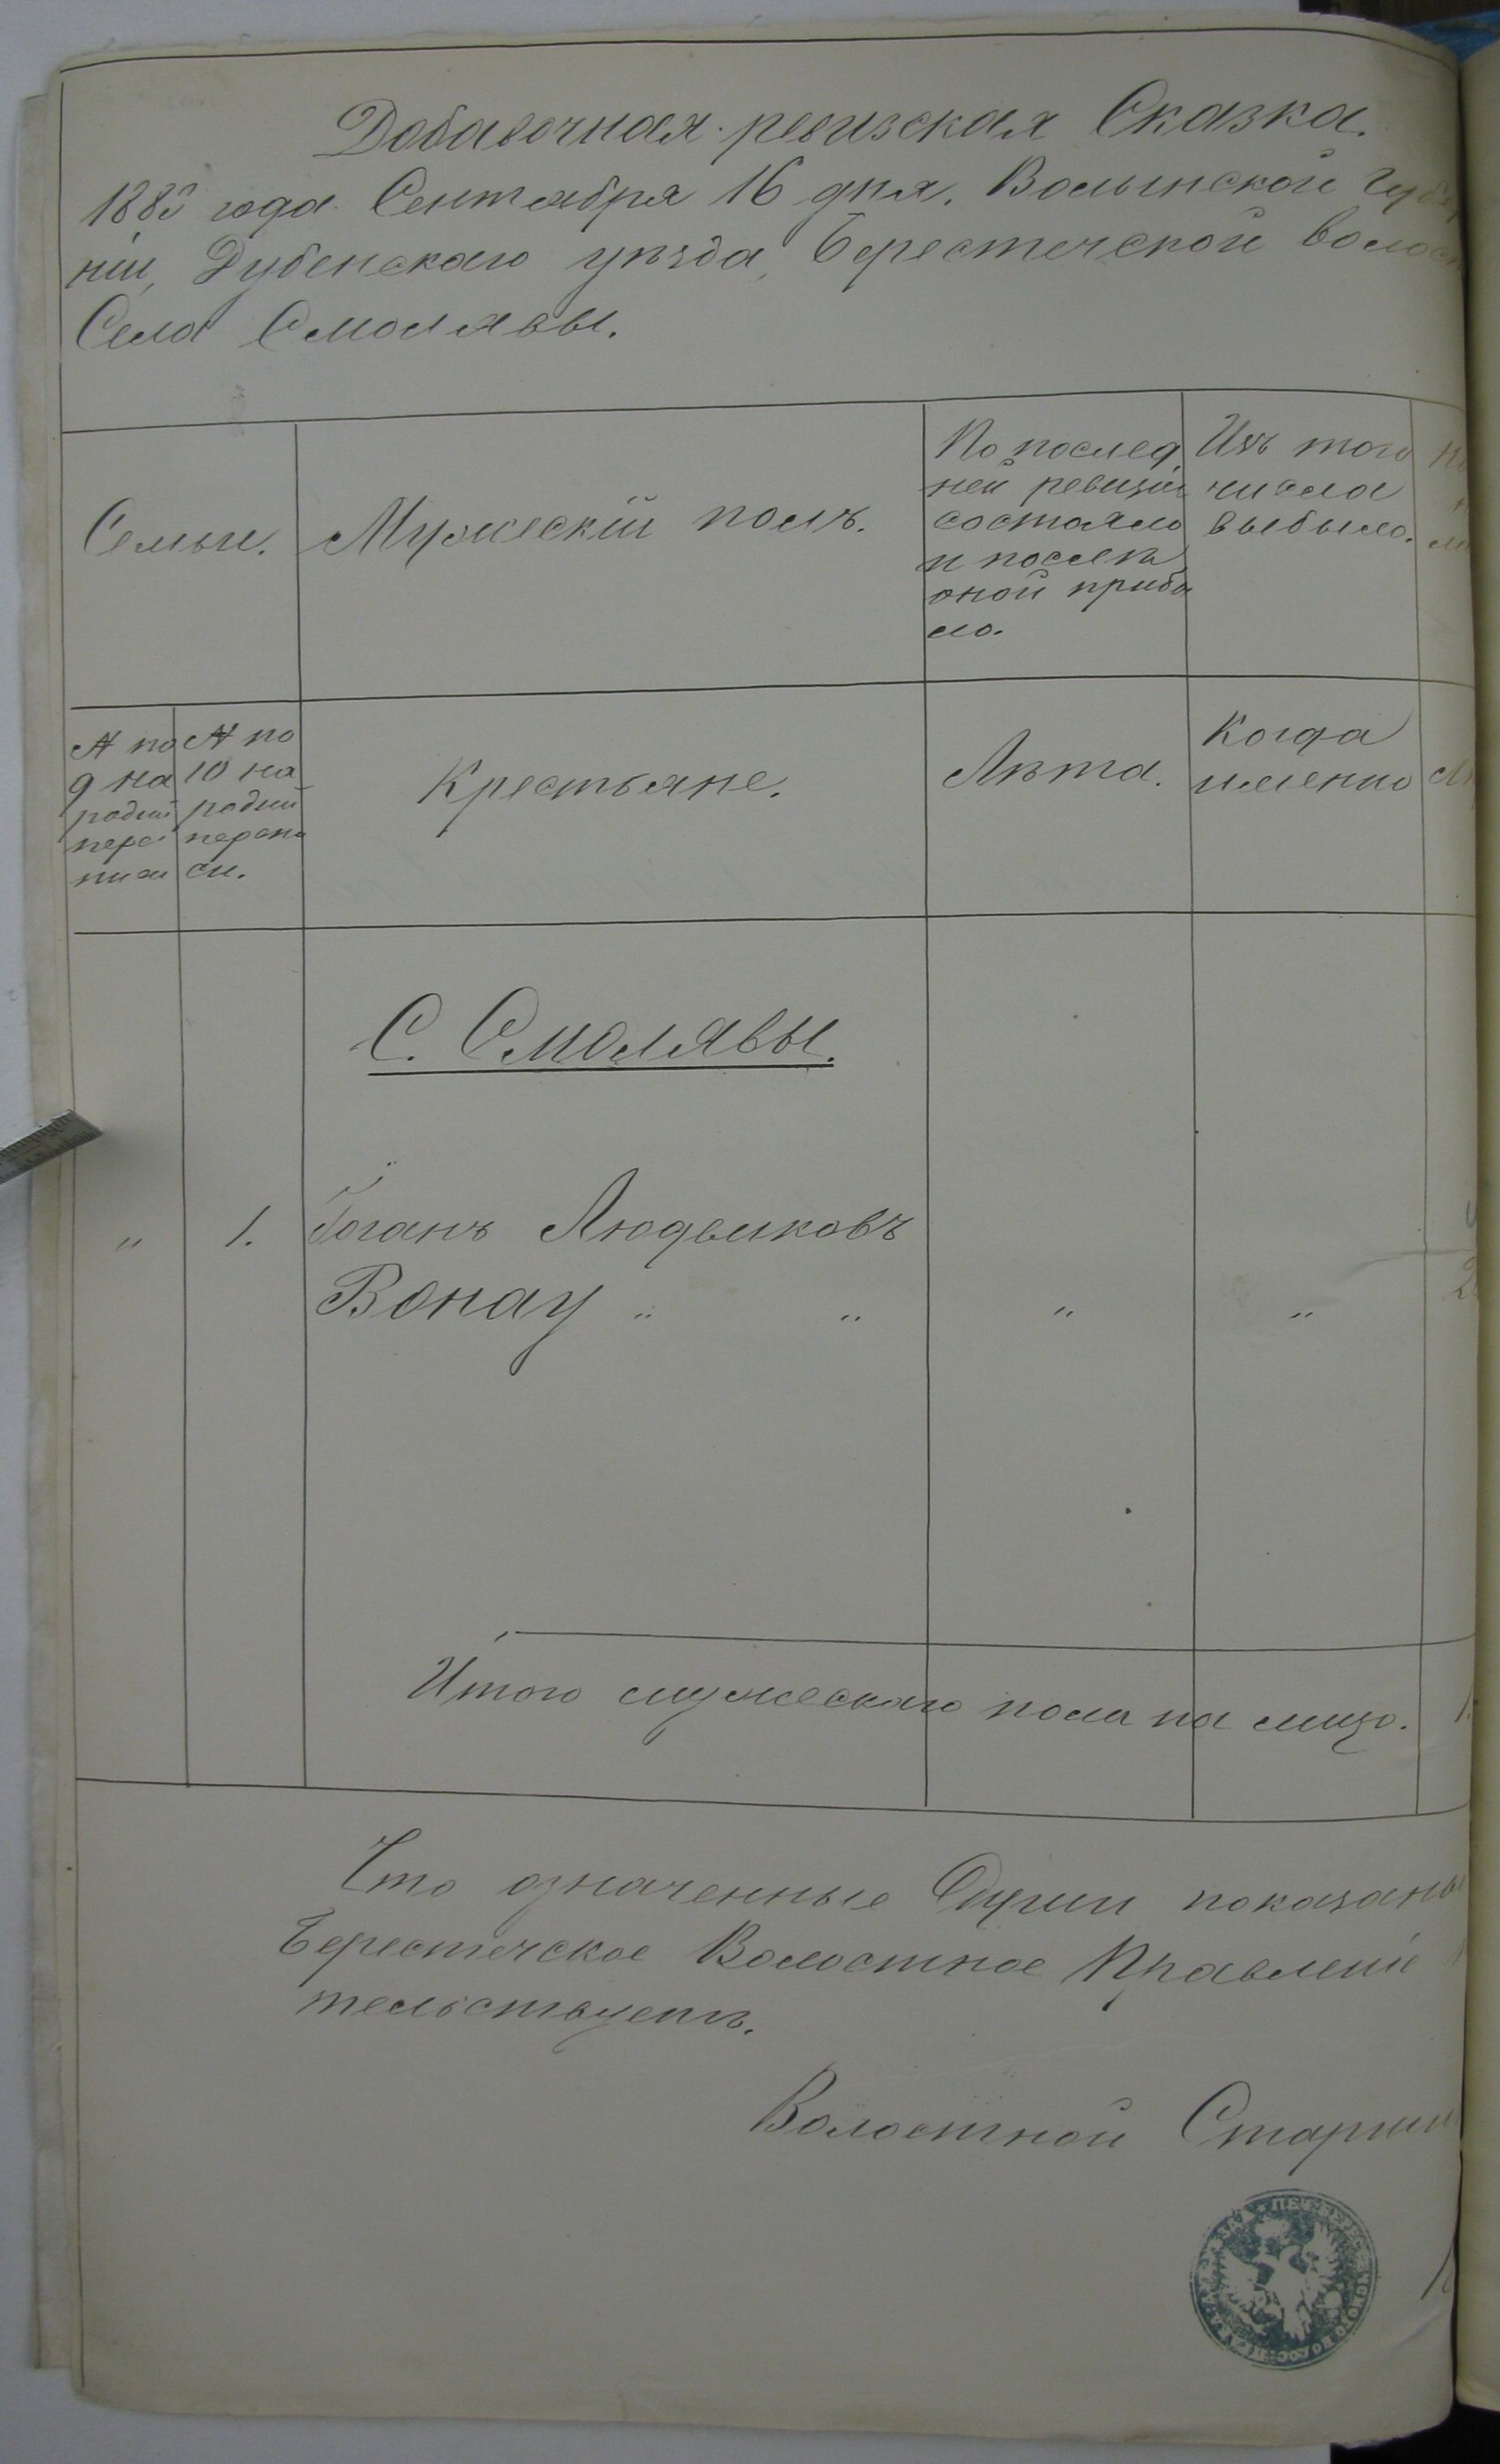 Добавочная ревизская Сказка.
1883 года Сентября 16 дня, Волынской Губер
ніи, Дубенскаго уѣзда, Берестечской волост
Села Смолявы.
Семьи.
Мужескій полъ.
По послед
ней ревизіи
состояло
и послѣ
оной прибы
ло.
Изъ того
числа
выбыло.
№ по
9 на
родной
пере
писи
№ по
10 на
родной
перепи
си.
Крестьяне.
Лѣта.
Когда
именно
С. Смолявы.
„ 1. Іоганъ Людвиковъ
Вонау „ „ „ „
Итого мужескаго пола на лицо. 1.
Что означенные Души показаны
Берестечское Волостное Правленіе
тельствуетъ.
Волостной Старшин